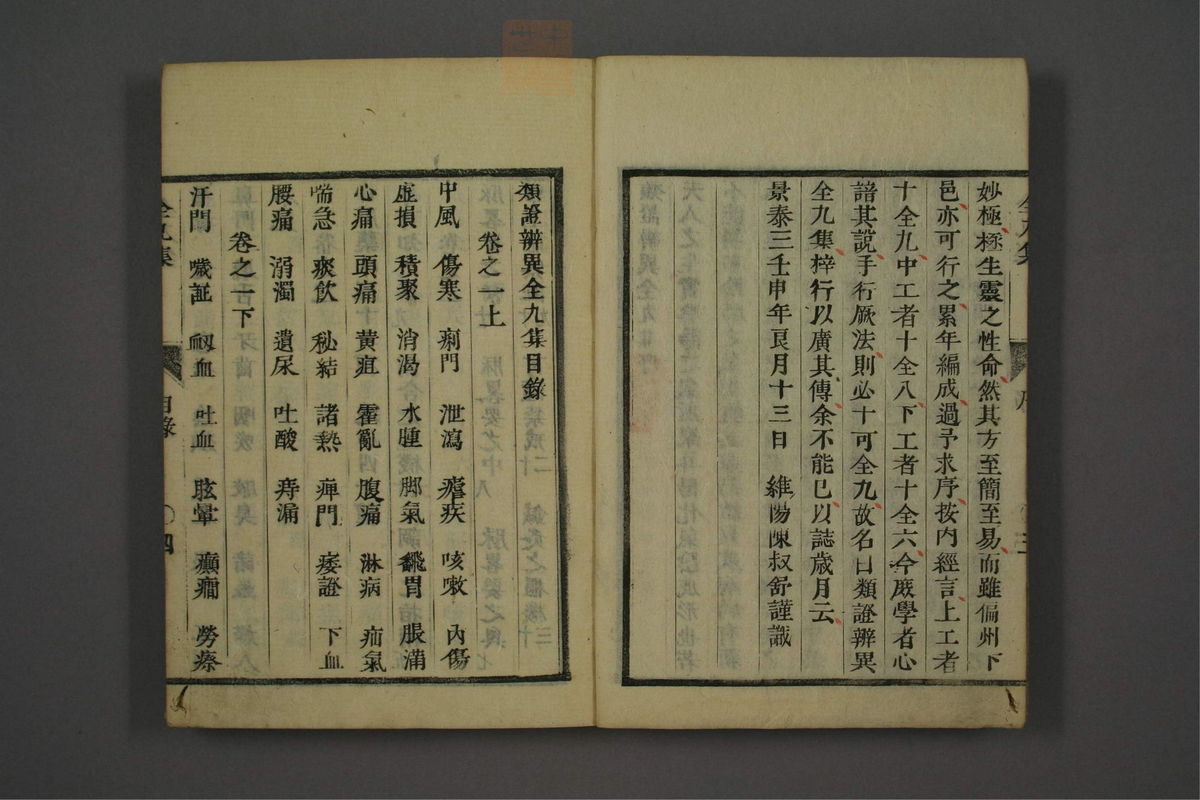 妙極拯生靈之性命然其方至簡至易而雖偏州下
邑亦可行之累年編成過予求序按內經言上工者
十全九中工者十全八下工者十全六今厥學者心
諳其說手行厥法則必十可全九故名曰類證辨異
全九集梓行以廣其傳余不能已以誌歲月云
景泰三壬申年良月十三日 維陽陳叔舒謹識
類證辨異全九集目錄
卷之一上
中風 傷寒 痢門 泄瀉 瘧疾 咳嗽 內傷
虛損 積聚 消渴 水腫 脚氣 飜胃 脹滿
心痛 頭痛 黃疸 霍亂 腹痛 淋病 疝氣
喘急 痰飲 秘結 諸熱 痺門 痿證 下血
腰痛 溺濁 遺尿 吐酸 痔漏
卷之一下
汗門 噦証 衂血 吐血 眩暈 癲癎 勞瘵
全九集 目錄 〇四